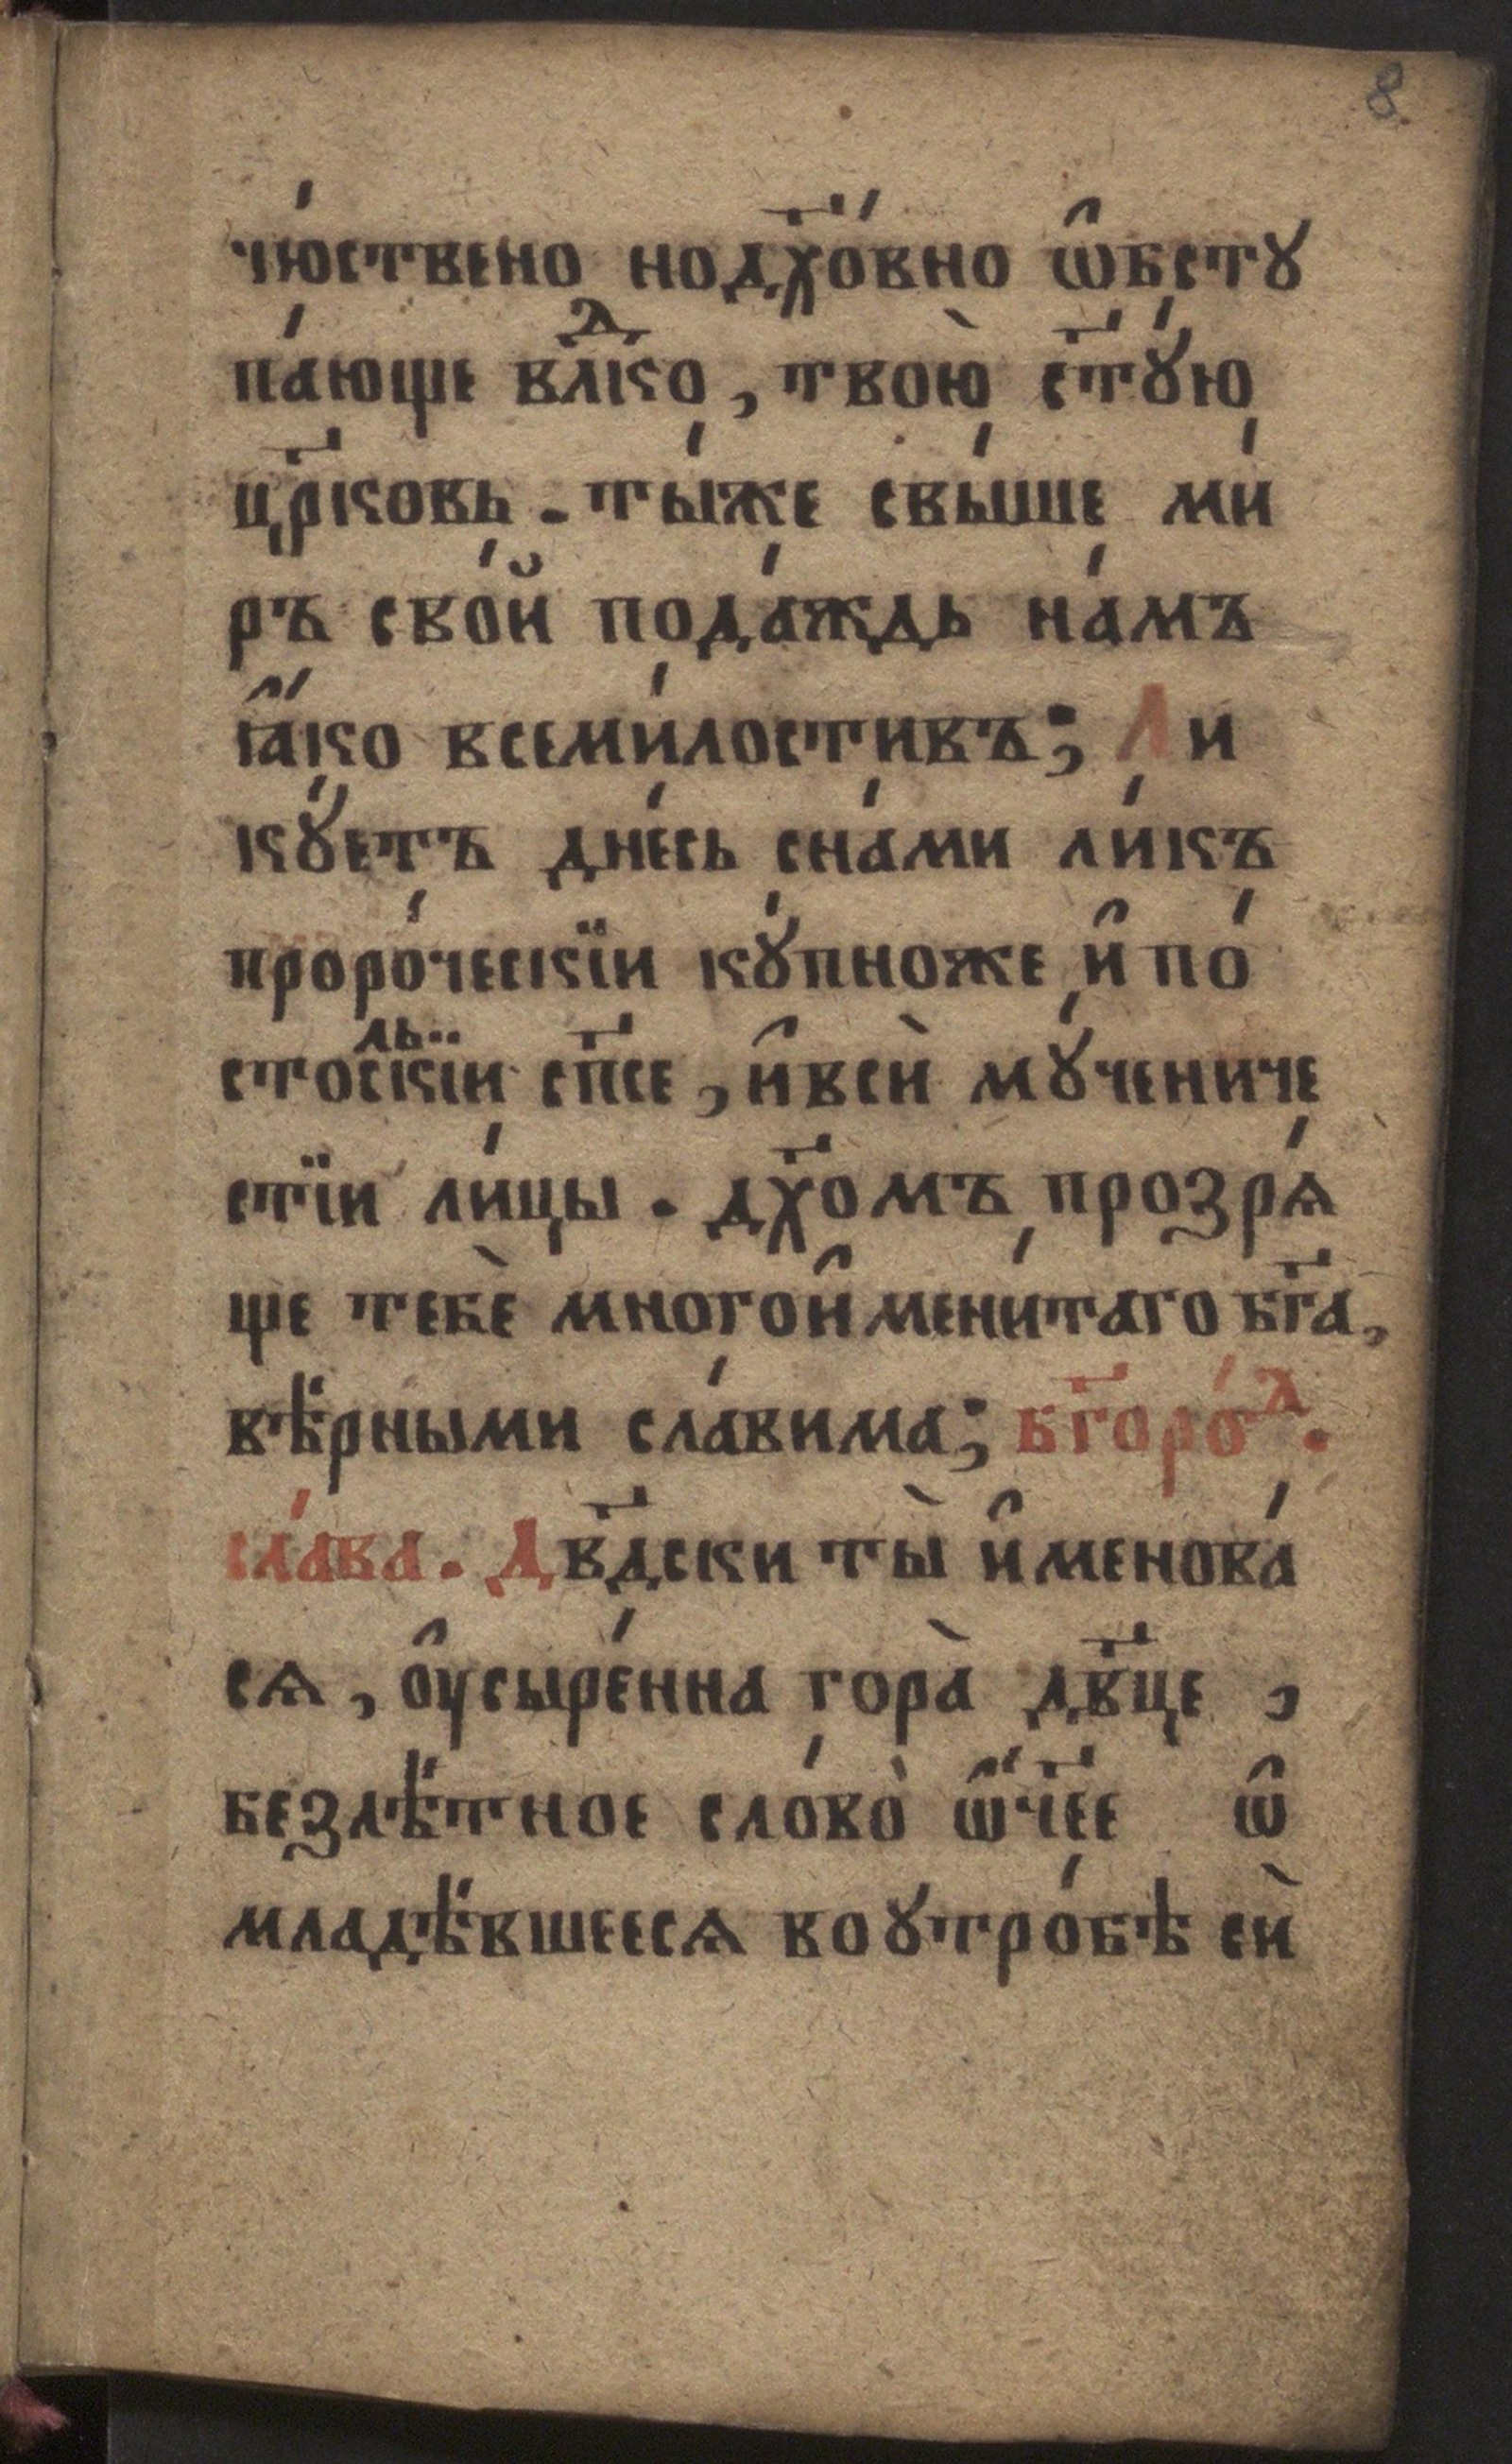 8
чю́ствено нодх҃о́вно ѡ҆бстꙋ
па́юще влⷣко, твою̀ ст҃ꙋ́ю
цр҃ковь. ты́же свы́ше ми́
ръ сво́й пода́ждь на́мъ
ꙗ҆́ко всеми́лостивъ; Ли
кꙋ́етъ дне́сь сна́ми ли́къ
проро́ческїи кꙋ́пноже и҆ по́
стоⷧ҇ьскїи сп҃се, и҆всѝ мꙋ́чениче
стїи ли́цы. дх҃омъ прозрѧ́
ще тебѐ многои҆мени́таго бг҃а,
вѣ́рными сла́вима; бг҃оро́ⷣ.
сла́ва. Дв҃дски ты̀ и҆менова́
сѧ, ᲂу҆сыре́нна гора̀ дв҃це,
безлѣ́тное сло́во̀ ѡ҆́ч҃ее ѡ҆
младѣ́вшеесѧ воꙋтро́бѣ сѝ